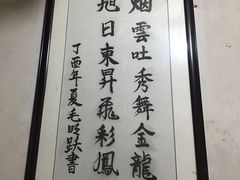 烟雲吐秀舞金龍
旭日東昇飛彩鳳
丁酉年夏毛明跃書